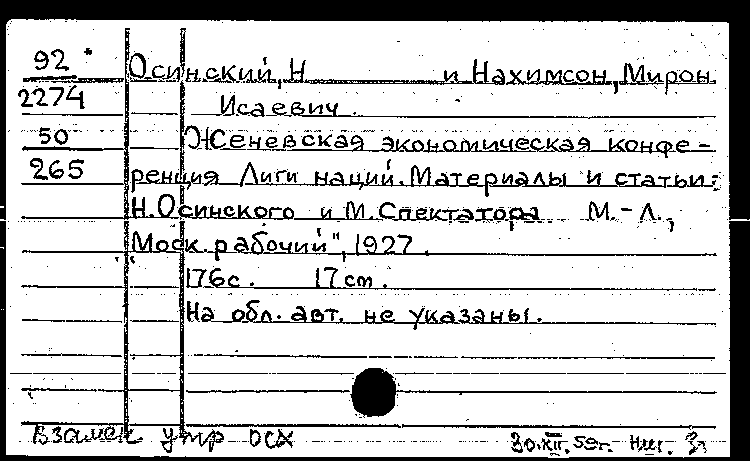 92 *
2274
50
265
Осинский, Н и Нахимсон, Мирон
Исаевич.
Женевская экономическая конфе-
ренция Лиги наций. Материалы и статьи:
Н.Осинского и М.Спектатора М.-Л.,
"Моск. рабочий", 1927.
176с. 17 см.
На обл. авт. не указаны.
Взамен утр осх
30.XII.59г.